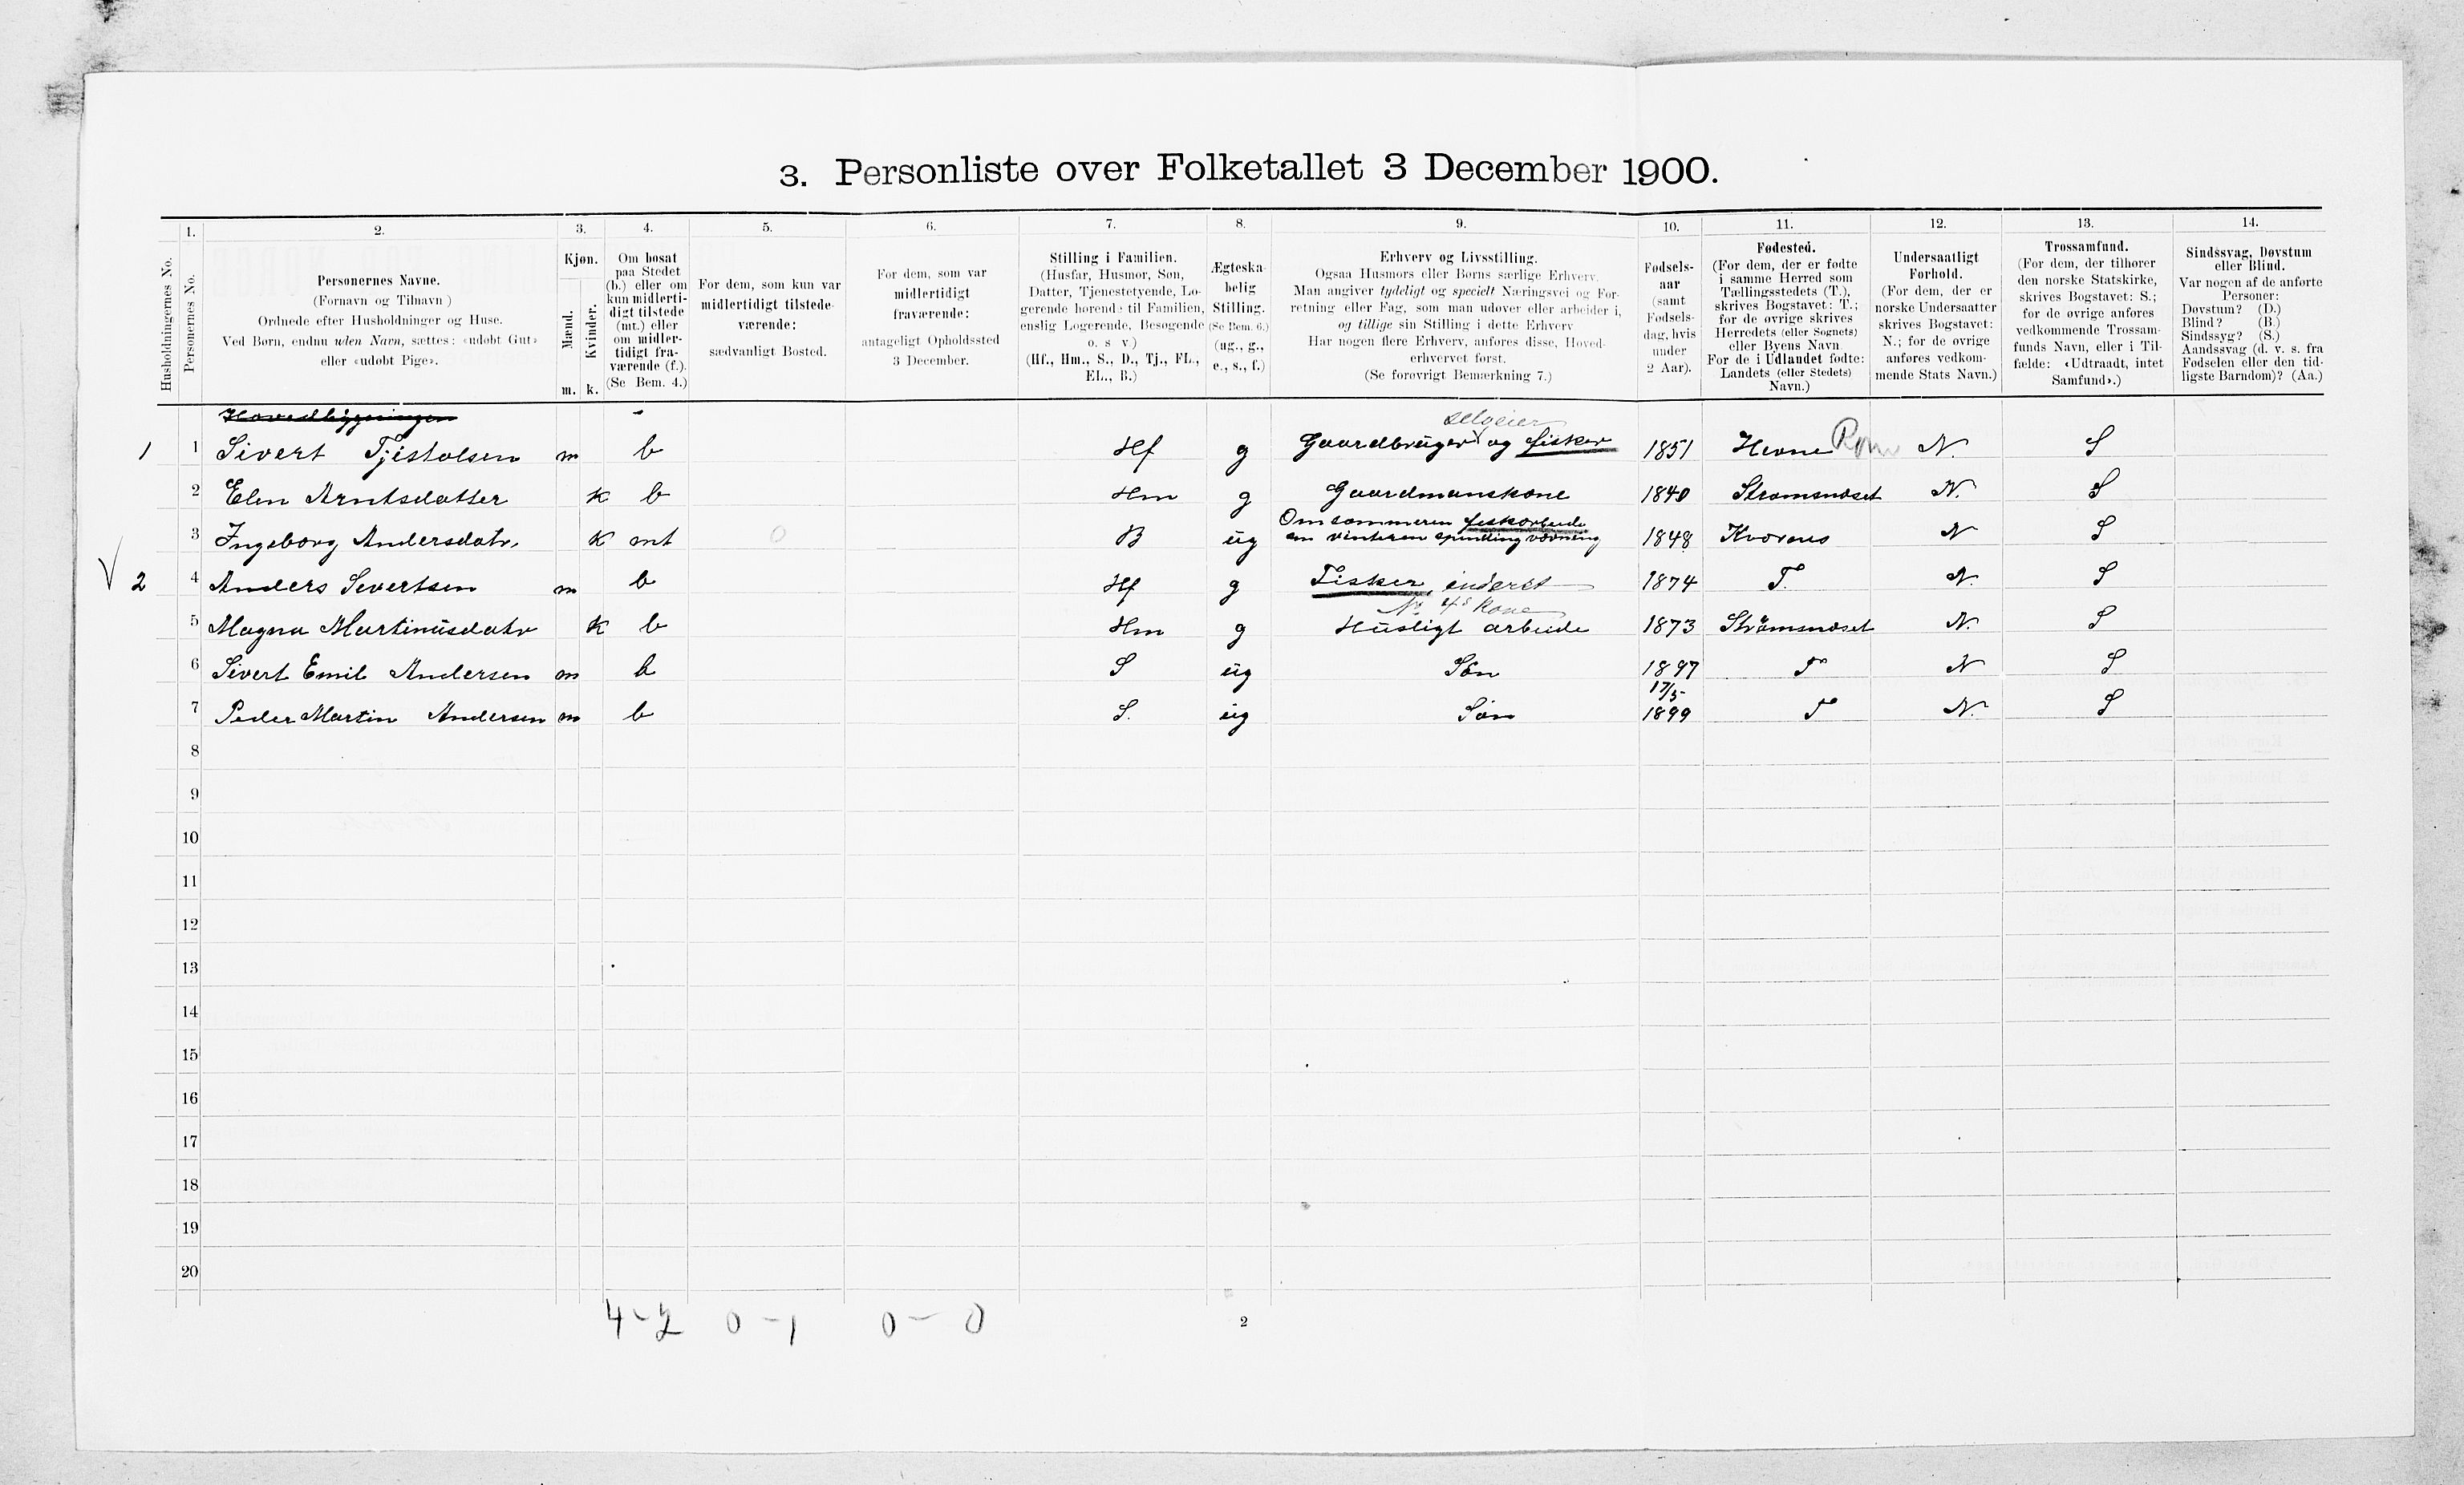 3. Personliste over Folketallet 3 December 1900.
1. 2. 3. 4. 5. 6. 7. 8. 9. 10. 11. 12. 13. 14.
Husholdningernes No.
Personernes No.
Personernes Navne.
(Fornavn og Tilnavn)
Ordnede efter Husholdninger og Huse.
Ved Børn, endnu uden Navn, sættes: «udøbt Gut»
eller «udøbt Pige».
Kjøn.
Mænd.
Kvinder.
m. k.
Om bosat
paa Stedet
(b.) eller om
kun midlerti-
digt tilstede
(mt.) eller
om midler-
tidigt fra-
værende (f.).
(Se Bem. 4.)
For dem, som kun var
midlertidigt tilstede-
værende:
sædvanligt Bosted.
For dem, som var
midlertidigt
fraværende:
antageligt Opholdssted
3 December.
Stilling i Familien.
(Husfar, Husmor, Søn,
Datter, Tjenestetyende, Lo-
gerende hørende til Familien,
enslig Logerende, Besøgende
o. s v.)
(Hf., Hm., S., D., Tj., FL.,
EL., B.)
Ægteska-
belig
Stilling.
(Se Bem. 6.)
(ug., g.,
e., s., f.)
Erhverv og Livsstilling.
Ogsaa Husmors eller Børns særlige Erhverv.
Man angiver tydeligt og specielt Næringsvei og For-
retning eller Fag, som man udøver eller arbeider i,
og tillige sin Stilling i dette Erhverv
Har nogen flere Erhverv, anføres disse, Hoved-
erhvervet først.
(Se forøvrigt Bemærkning 7.)
Fødsels-
aar
(samt
Fødsels-
dag, hvis
under
2 Aar).
Fødested.
(For dem, der er fødte
i samme Herred som
Tællingsstedets (T.),
skrives Bogstavet: T.;
for de øvrige skrives
Herredets (eller Sognets)
eller Byens Navn
For de i Udlandet fødte:
Landets (eller Stedets)
Navn.)
Undersaatligt
Forhold.
(For dem, der er
norske Undersaatter
skrives Bogstavet:
N.; for de øvrige
anføres vedkom-
mende Stats Navn.)
Trossamfund.
(For dem, der tilhører
den norske Statskirke,
skrives Bogstavet: S.;
for de øvrige anføres
vedkommende Trossam-
funds Navn, eller i Til-
fælde: «Udtraadt, intet
Samfund».)
Sindssvag, Døvstum
eller Blind.
Var nogen af de anførte
Personer:
Døvstum? (D.)
Blind? (B.)
Sindssyg? (S.)
Aandssvag (d. v. s. fra
Fødselen eller den tid-
ligste Barndom)? (Aa.)
Hovedbygningen
selveier
1 1 Sivert Tjistolsen m b Hf g Gaardbruger og fisker 1851 Hevne Rom N. S
2 Elen Arntsdatter k b Hm g Gaardmanskone 1840 Strømsnæset N. S
Om sommeren fiskarbeide
3 Ingeborg Andersdatr. k mt 0 B ug om vinteren spinding vævning 1848 Kvernes N S
V 2 4 Anders Severtsen m b Hf g Fisker, inderst 1874 T. N. S
No 4s Kone
5 Magna Martinusdatr k b Hm g Husligt arbeide 1873 Strømsnæset N. S
6 Sivert Emil Andersen m b S ug Søn 1897 T N S
17/5
7 Peder Martin Andersen m b S. ug Søn 1899 T N. S
8
9
10
11
12
13
14
15
16
17
18
19
20
4-2 0-1 0-0
2